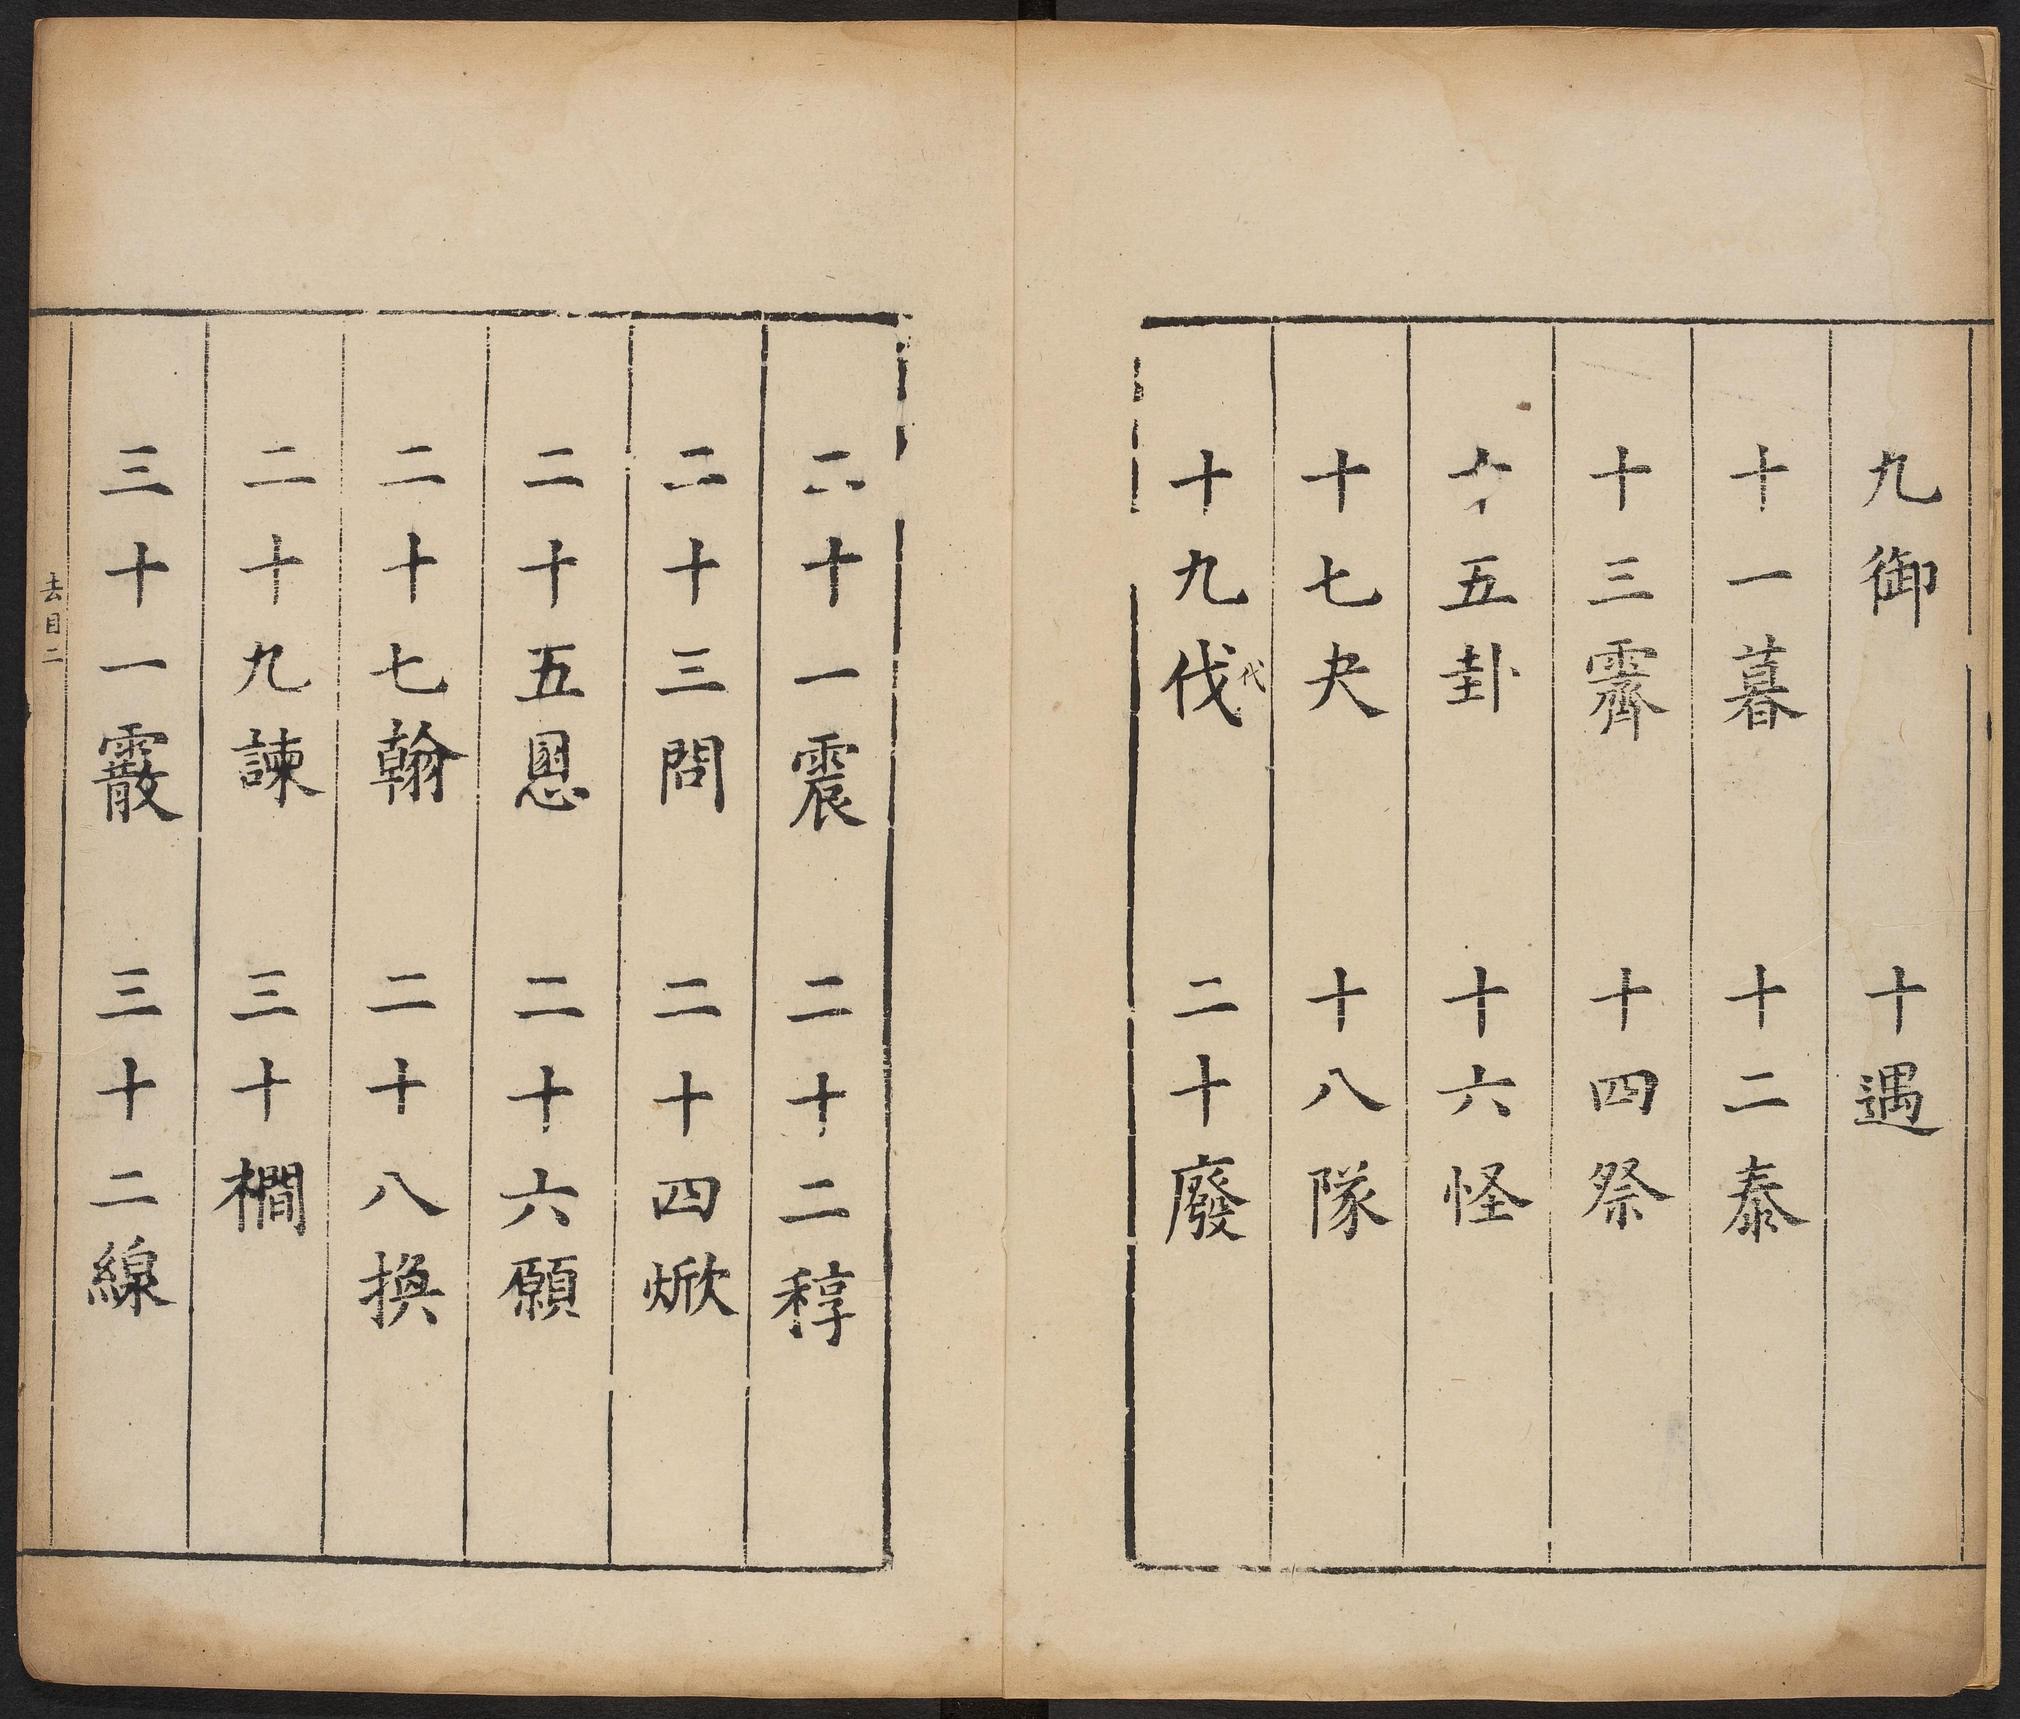 九御 十遇
十一暮 十二泰
十三霽 十四祭
十五卦 十六怪
十七夬 十八隊
十九伐 二十廢
代
二十一震 二十二稕
二十三問 二十四焮
二十五慁 二十六願
二十七翰 二十八換
二十九諫 三十橺
三十一霰 三十二線
去目二